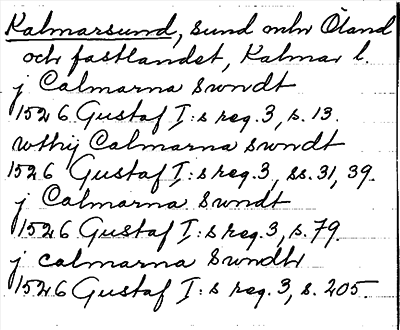 Kalmarsund, sund mlr Öland
och fastlandet, Kalmar l.
j Calmarna swndt
1526 Gustaf I:s reg. 3, s. 13.
wthij Calmarna swndt
1526 Gustaf I:s reg. 3, ss. 31, 39.
j Calmarna swndt
1526 Gustaf I:s reg. 3, s. 79.
j calmarna swndh
1526 Gustaf I:s reg. 3, s. 205.